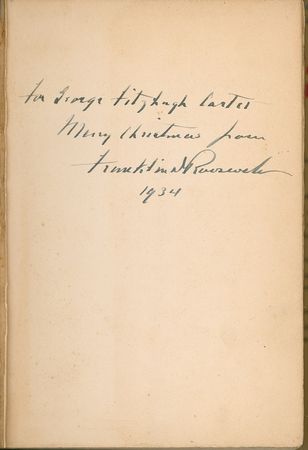 For George Fitzhugh Carter
Merry Christmas from
Franklin D Roosevelt
1934